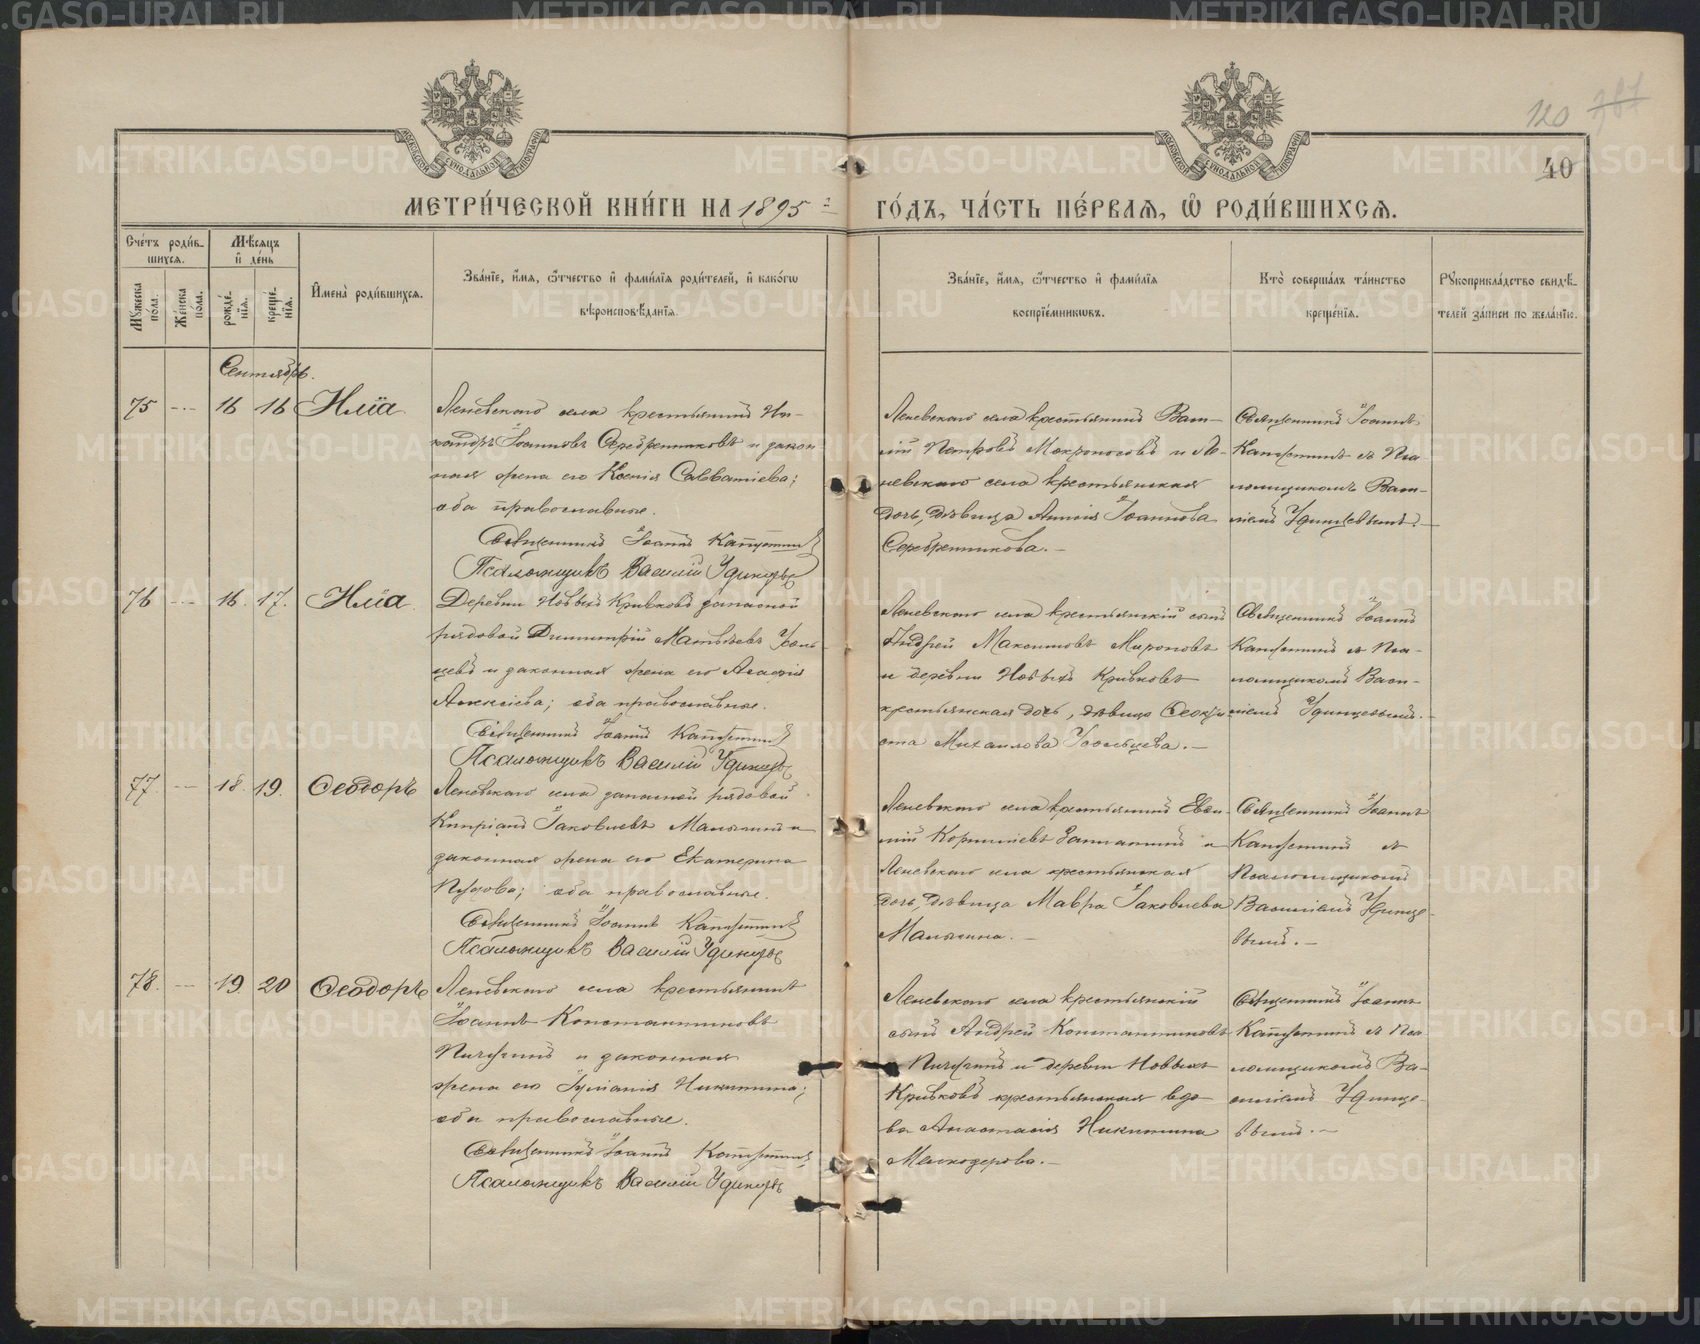 120 787
40
МОСКОВСКОЙ СѴНОДАЛЬНОЙ ТИПОГРАФІИ
МОСКОВСКОЙ СѴНОДАЛЬНОЙ ТИПОГРАФІИ
МЕТРИ́ЧЕСКОЙ КНИ́ГИ НА 1895 =
ГО́ДЪ, ЧА́СТЬ ПЕ́РВАѦ, Ѡ҆ РОДИ́ВШИХСѦ.
Сче́тъ роди́в-
шихсѧ.
Мꙋжеска по́ла.
Же́нска по́ла.
Мѣ́сѧцъ
и҆ де́нь
рожде́-
нїѧ.
креще́-
нїѧ.
И҆мена̀ роди́вшихсѧ.
Зва́нїе, и҆́мѧ, ѻ҆́тчество и҆ фами́лїѧ роди́телей, и҆ како́гѡ
вѣроисповѣ́данїѧ.
Зва́нїе, и҆́мѧ, ѻ҆́тчество и҆ фами́лїѧ
воспрїе́мникѡвъ.
Кто̀ соверша́лъ та́инство
креще́нїѧ.
Рꙋкоприкла́дство свидѣ́-
телей за́писи по жела́нїю.
Сентябрь.
75 - 16 16 Илїа
Леневскаго села крестьянинъ Ни-
каноръ Іоанновъ Серебренниковъ и закон
ная жена его Ксенія Савватіева;
оба православные.
Священникъ Іоаннъ Капустинъ
Псаломщикъ Василій Удинцевъ
Леневскаго села крестьянинъ Васи-
лій Петровъ Мокроносовъ и Ле-
невскаго села крестьянская
дочь, дѣвица Анисія Іоаннова
Серебренникова. –
Священникъ Іоаннъ
Капустинъ съ Пса-
ломщикомъ Васи-
ліемъ Удинцевымъ. –
76 - 16. 17. Илїа
Деревни Новыхъ Кривковъ запасной
рядовой Димитрій Матвѣевъ Усоль-
цевъ и законная жена его Агафія
Алексіева; оба православные.
Священникъ Іоаннъ Капустинъ
Псаломщикъ Василій Удинцевъ
Леневскаго села крестьянскій сынъ
Андрей Максимовъ Мироновъ
и деревни Новыхъ Кривковъ
крестьянская дочь, дѣвица Ѳеокти
ста Михаилова Усольцева. –
Священникъ Іоаннъ
Капустинъ съ Пса-
ломщикомъ Васи-
ліемъ Удинцевымъ. –
77. - 18. 19. Ѳеодоръ
Леневскаго села запасной рядовой
Кипріанъ Іаковлевъ Маныгинъ и
законная жена его Екатерина
оба православные.
Священникъ Іоаннъ Капустинъ
Псаломщикъ Василій Удинцевъ
Леневскаго села крестьянинъ Евѳи-
мій Корниліевъ и
Леневскаго села крестьянская
дочь, дѣвица Мавра Іаковлева
Маныгина. –
Священникъ Іоаннъ
Капустинъ съ
Псаломщикомъ
Василіемъ Удинце-
вымъ. –
78. - 19. 20 Ѳеодоръ
Леневскаго села крестьянинъ
Іоаннъ Константиновъ
Пичугинъ и законная
жена его Іуліанія Никитина;
оба православные.
Священникъ Іоаннъ Капустинъ
Псаломщикъ Василій Удинцевъ
Леневскаго села крестьянскій
сынъ Андрей Константиновъ
Пичугинъ и деревни Новыхъ
Кривковъ крестьянская вдо-
ва Анастасія Никитина
Мелкозерова. –
Священникъ Іоаннъ
Капустинъ съ Пса-
ломщикомъ Ва-
силіемъ Удинце-
вымъ. –
METRIKI.GASO-URAL.RU